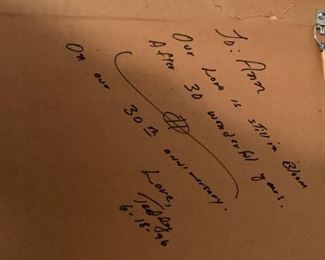 To: Ann
Our Love is still in Bloom
After 30 wonderful years.
On our 30th anniversary.
Love,
Teddy
6-18-96